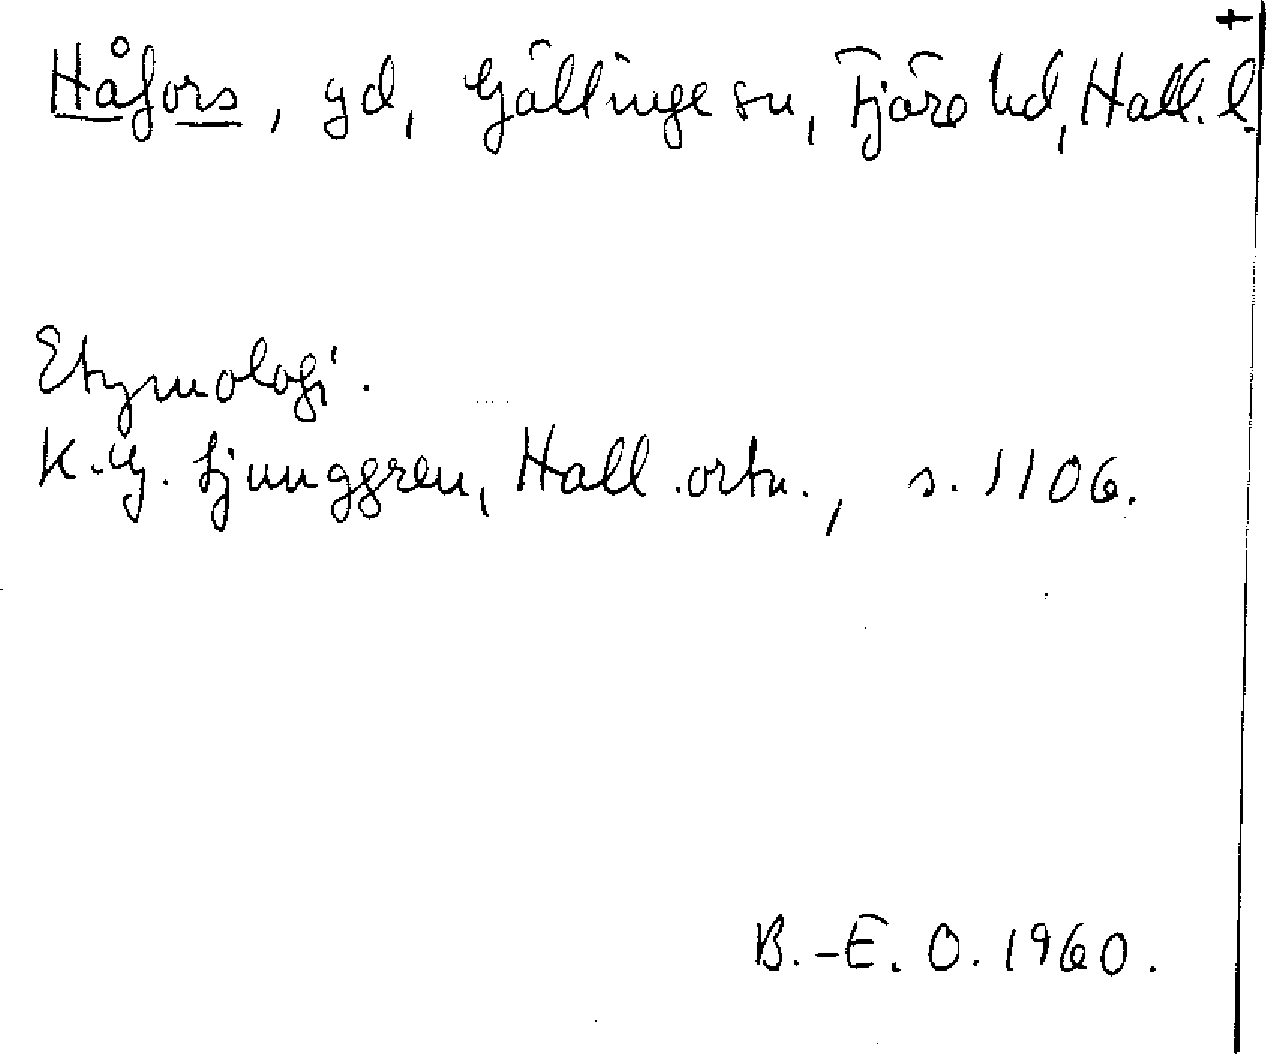 +
Håfors, gd, Gällinge sn, Fjäre hd, Hall. l.
Etymologi.
K.G. Ljunggren, Hall. ortn., s. 1106.
B.-E. O. 1960.